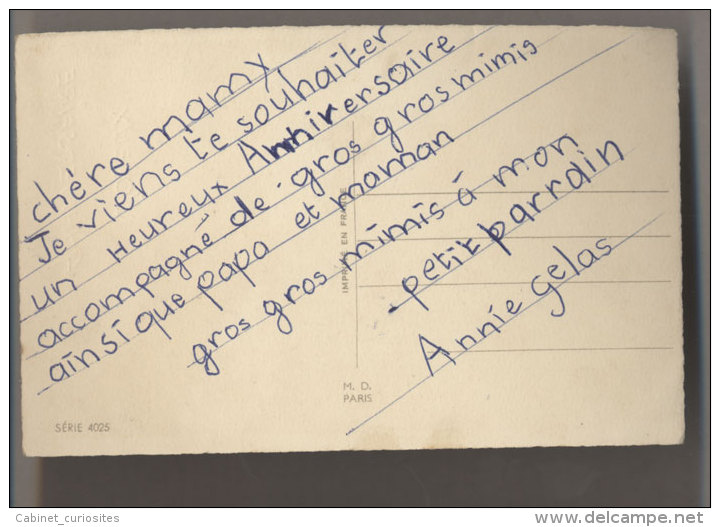 chère mamy
Je viens te souhaiter
un Heureux Anniversaire
accompagné de gros gros mimis
ainsi que papa et maman
gros gros mimis à mon
petit parrain
Annie Gelas
IMPRIMÉ EN FRANCE
M. D.
PARIS
SÉRIE 4025
Cabinet_curiosites
www.delcampe.net